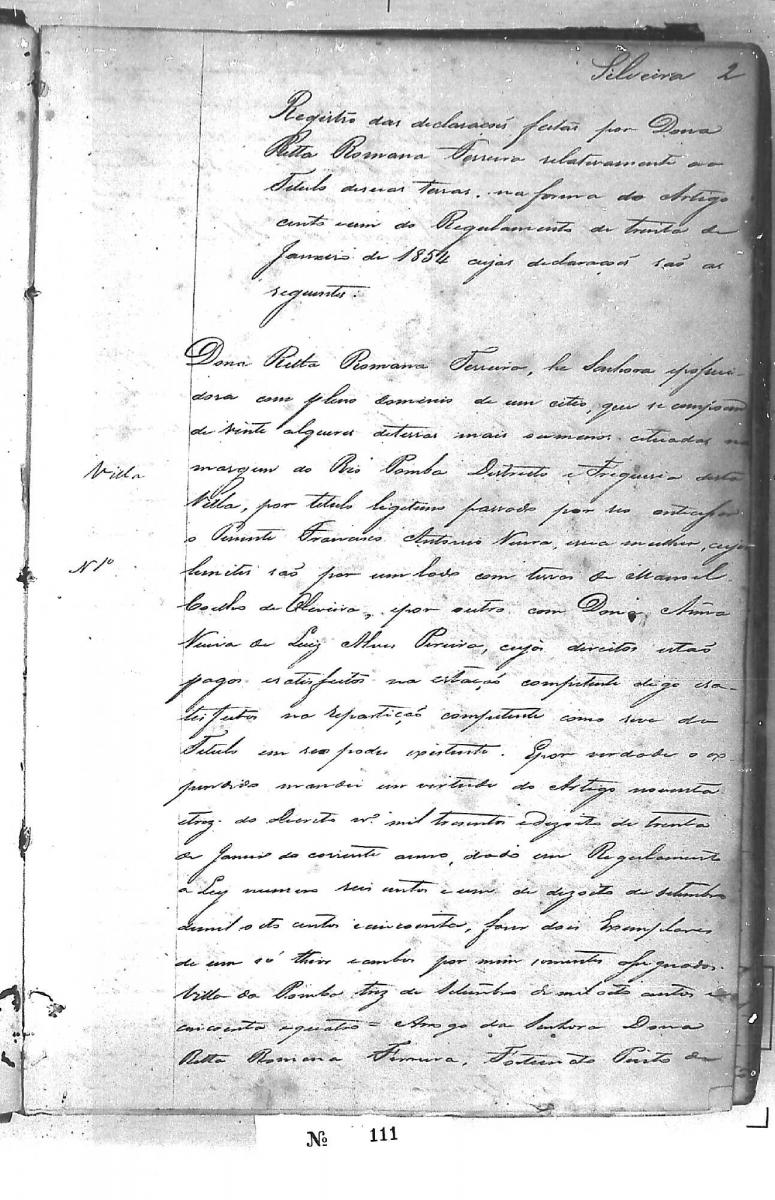 Silveira 2
Registro das declaracoẽs feitas por Dona
Ritta Romana Ferreira relativamente ao
Titulo desuas terras. na forma do Artigo
cento eum do Regulamento de trinta de
Janeiro de 1854 cujas declaraçoẽs são as
seguintes:
Dona Ritta Romana Ferreira, he Senhora epossui-
dora com pleno dominio de um citio, que se compoem
de vinte alqueres deterras mais oumenos cituadas na
Villa
margem do Rio Pomba Districto e Freguesia desta
Villa, por titulo legitimo passado por seo antecessor
o Tenente Francisco Antonio Vieira, esua mulher, cujos
Nº 1º
limites são por um lado com terras de Manoel
Coelho de Oliveira, epor outro com Dona Anna
Vieira de Luiz Alves Pereira, cujos direitos estaõ
pagos esatisfeitos na estaçaõ competente digo esa-
tisfeitos na repartiçaõ competente como seve do
Titulo em seo poder existente. Epor verdade o ex-
pendido mandei em vertude do Artigo noventa
etrez do Decreto nº mil tresentos edezoito de trinta
de Janeiro do corrente anno, dado em Regulamento
a Ley numero seis centos eum de dezoito de setembro
demil oito centos ecincoenta, fazer dois Exemplares
de um só theor eambos por mim somente assignados.
Villa da Pomba trez de Setembro de mil oito centos e
cincoenta equatro = Arogo da Senhora Dona
Ritta Romana Ferreira, Fortunato Pinto de
Nº 111